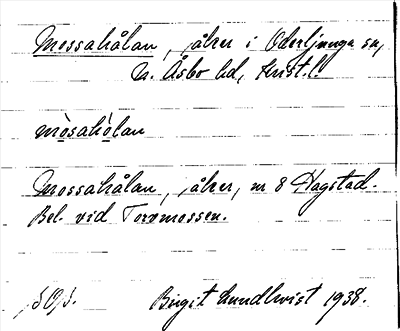 Mossahålan, åker i Oderljunga sn,
N. Åsbo hd, Krist. l.
mòsahòlan
Mossahålan, åker, nr 8 Hagstad.
Bel. vid Torvmossen.
Birgit Lundkvist 1938.